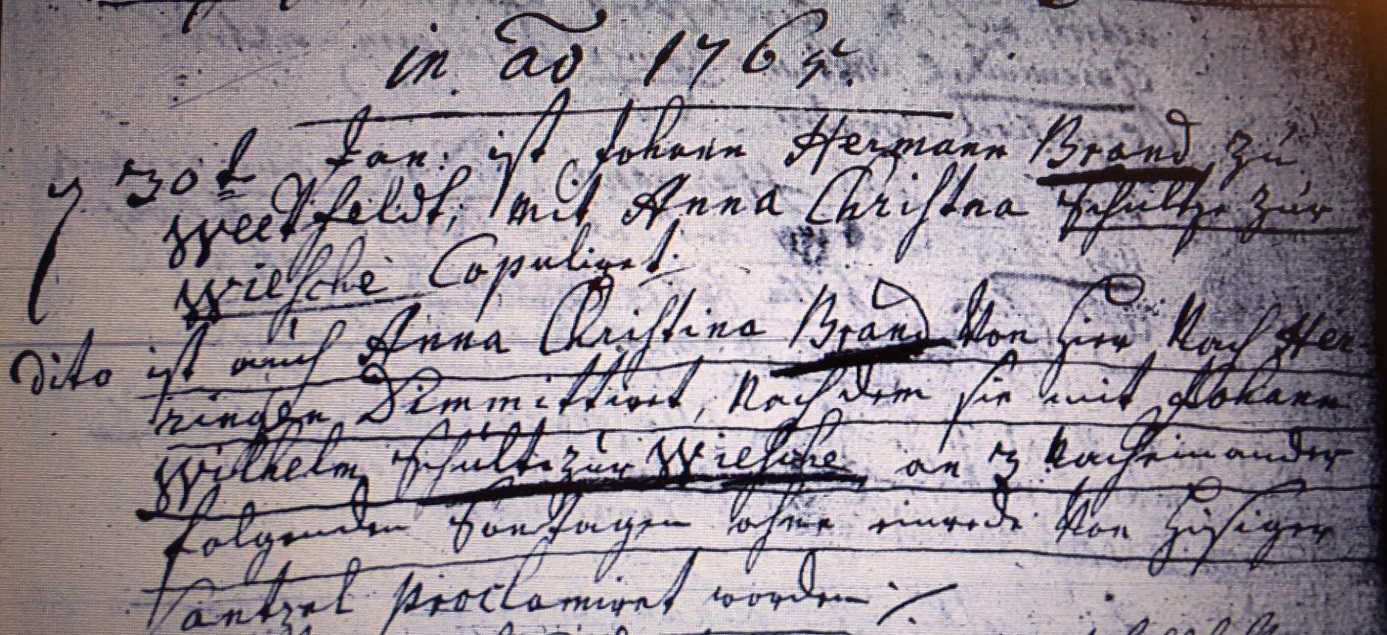 in aō 1765.
30t Jan: ist Johann Hermann Brand zu
Weetfeldt, mit Anna Christina Schultze zur
Wiesche Copuliret.
dito ist auch Anna Christina Brand von hier nach Her
ringen Dimmittiret, nachdem sie mit Johann
Wilhelm Schulte zur Wiesche an 3 nacheinander
folgenden Sontagen ohne einrede von hiesiger
Cantzel proclamiret worden ./.